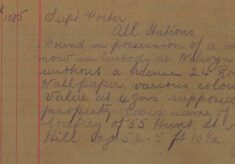 1015
Supt Foster
All Stations
Found in possession of a m
now in custody at W
without a licence 24 Ro
Wall paper various colou
Value at 4gns supposed
property gives name of
Godfrey of 55 Hunt St
Hill age 52 . 5 ft 10¼